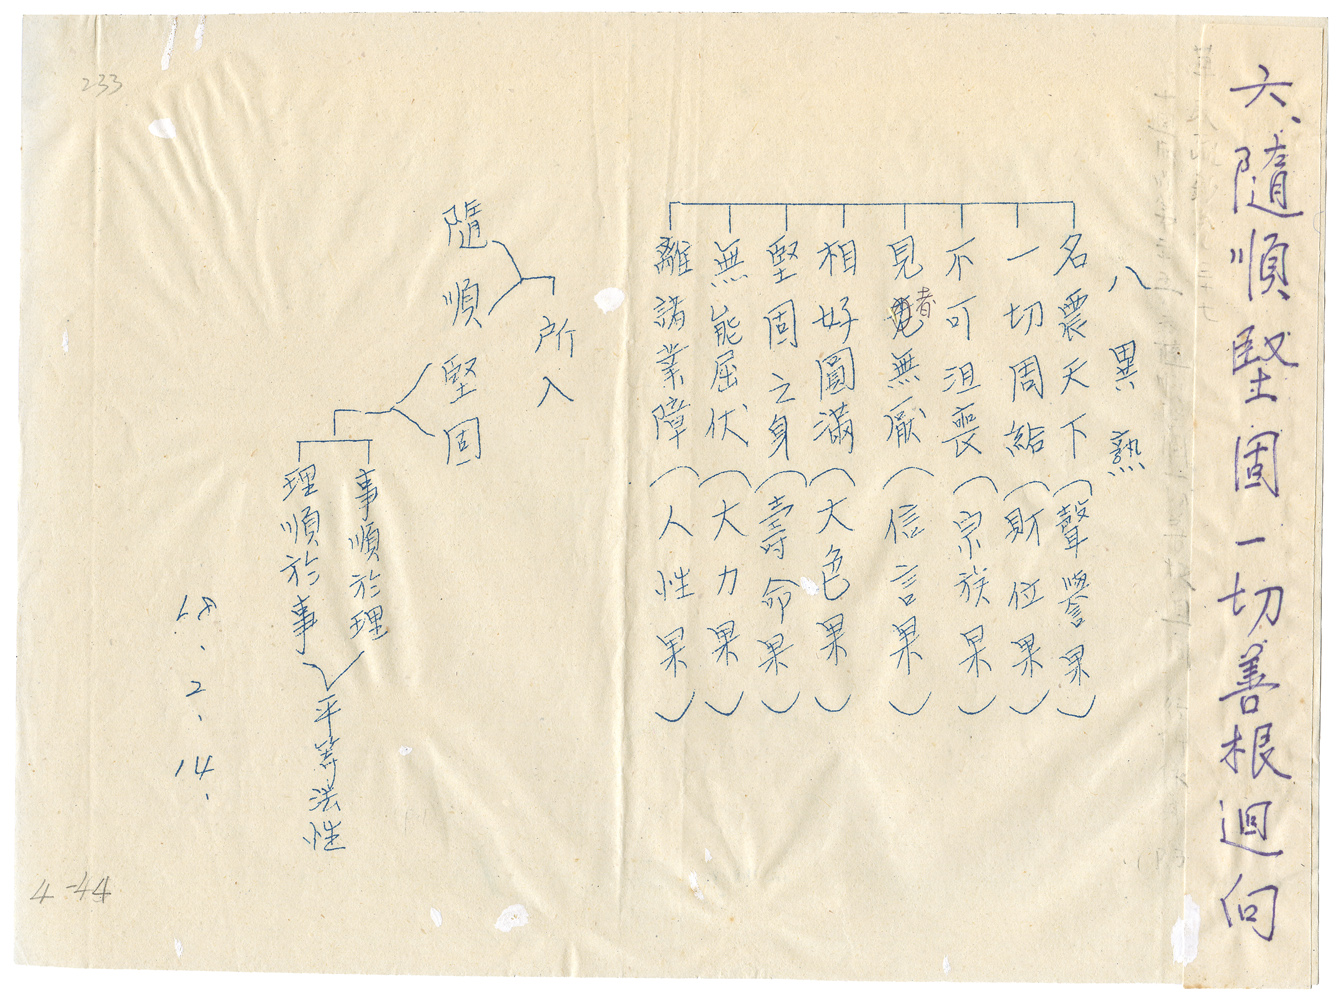 六、隨順堅固一切善根迴向
八異熟
名震天下(聲譽果)
一切周給(財位果)
不可沮喪(宗族果)
見者無厭(信言果)
相好圓滿(大色果)
堅固之身(壽命果)
無能屈伏(大力果)
離諸業障(人性果)
所入
隨順堅固
事順於理
理順於事
平等法性
68.2.14.
233
4-44